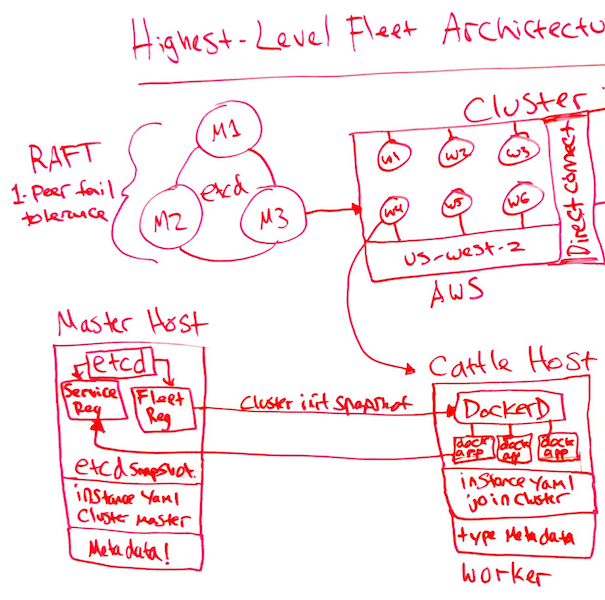 Highest-Level Fleet Archictectu
Cluster
RAFT
1-Peer fail
tolerance
M1
M2
M3
etcd
W1
W2
W3
W4
W5
W6
us-west-2
Direct connect
AWS
Master Host
etcd
Service
Reg
Fleet
Reg
etcd snapshot
instance yaml
Cluster Master
Metadata!
Cluster init snapshot
Cattle Host
DockerD
dock
app
dock
app
dock
app
instance yaml
join cluster
type Metadata
worker